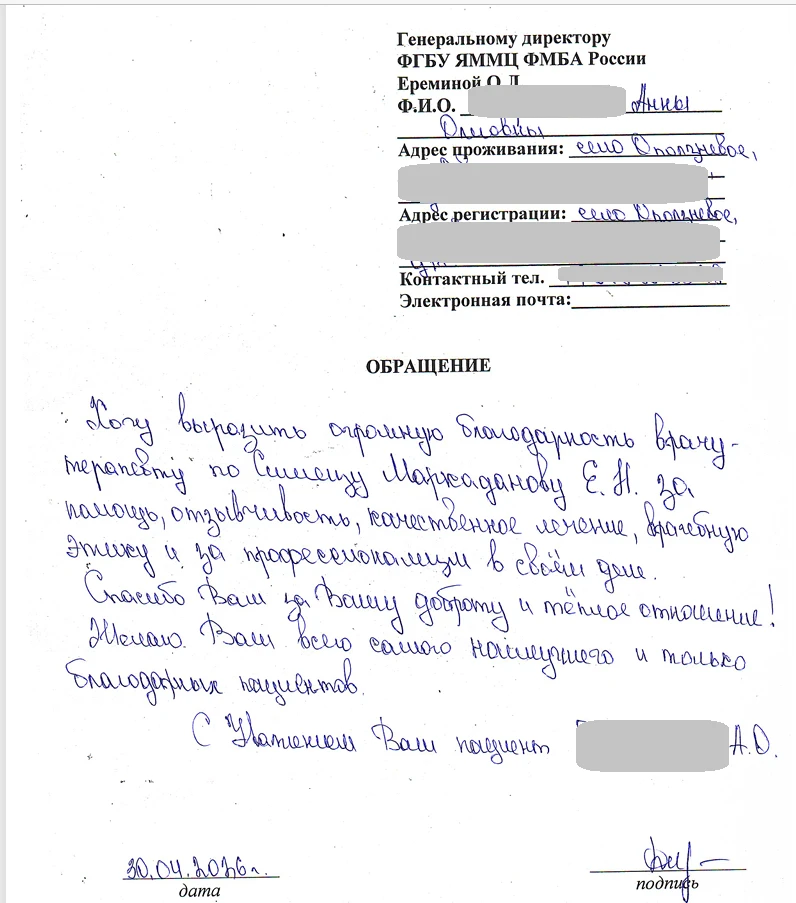 Генеральному директору
ФГБУ ЯММЦ ФМБА России
Ереминой О.Л
Ф.И.О. Анны
Адрес проживания: село Оползневое,
Адрес регистрации: село Оползневое,
Контактный тел.
Электронная почта:
ОБРАЩЕНИЕ
Хочу выразить огромную благодарность врачу-
терапевту по Симеизу Маркаданову Е.Н. за
помощь, отзывчивость, качественное лечение, врачебную
этику и за профессионализм в своём деле.
Спасибо Вам за Вашу доброту и тёплое отношение!
Желаю Вам всего самого наилучшего и только
благодарных пациентов.
С Уважением Ваш пациент А.О.
30.04.2026г.
дата
подпись